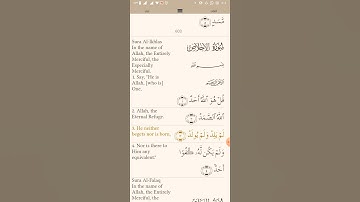 مَّسَدٍ
603
Sura Al-Ikhlas
In the name of
Allah, the Entirely
Merciful, the
Especially
Merciful.
سُورَةُ الإِخْلَاصِ
1. Say, "He is
Allah, [who is]
One,
قُلْ هُوَ اللَّهُ أَحَدٌ
2. Allah, the
Eternal Refuge.
اللَّهُ الصَّمَدُ
3. He neither
begets nor is born,
لَمْ يَلِدْ وَلَمْ يُولَدْ
4. Nor is there to
Him any
equivalent."
وَلَمْ يَكُن لَّهُ كُفُوًا
أَحَدٌ
Sura Al-Falaq
In the name of
Allah, the Entirely
Merciful, the